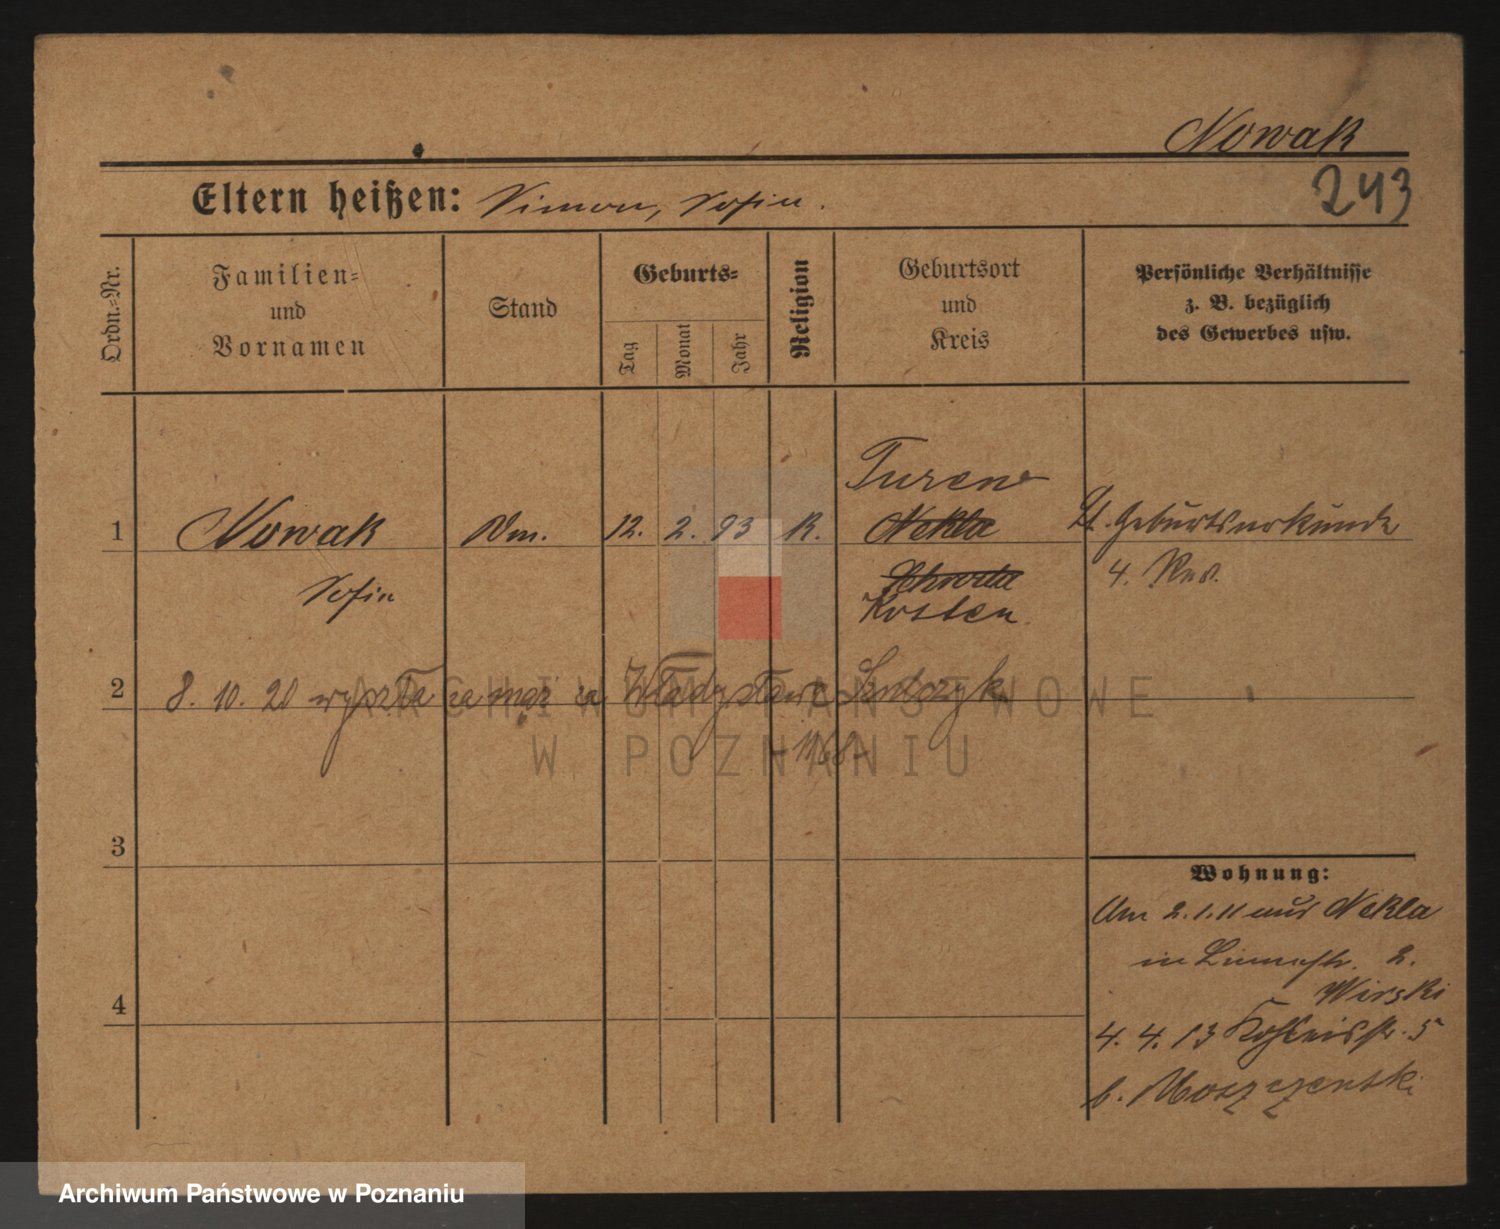 Nowak
243
Eltern heißen: Simon, Sofia.
Ordn.-Nr.
Familien-
und
Vornamen
Stand
Geburts-
Tag
Monat
Jahr
Religion
Geburtsort
und
Kreis
Persönliche Verhältnisse
z. B. bezüglich
des Gewerbes usw.
Turew
1 Nowak 12. 2. 93 K. Nekla Lt. Geburtsurkunde
Sofia Schroda 4. Rev.
Kosten
2 8. 10. 20 wyszła za mąż za Władysława
3
4
Wohnung:
Am 2.1.11 aus Nekla
in 2.
Wirski
4. 4. 13 5
b. Moszczenski
ARCHIWUM PAŃSTWOWE
W POZNANIU
Archiwum Państwowe w Poznaniu